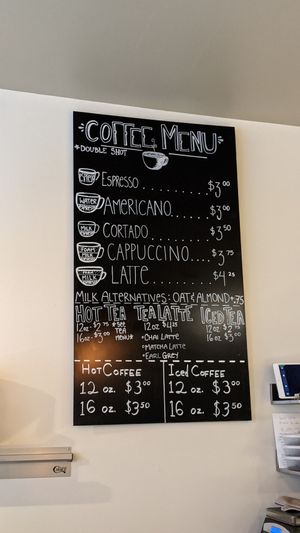 COFFEE MENU
*DOUBLE SHOT
ESPRESSO......$3.00
WATER
AMERICANO......$3.00
MILK
CORTADO......$3.50
FOAM
MILK
CAPPUCCINO...$3.75
MILK
LATTE......$4.25
MILK ALTERNATIVES: OAT & ALMOND +.75
HOT TEA TEA LATTE ICED TEA
12 oz. $2.75 *SEE 12 oz. $4.25
16 oz. $3.00 TEA •CHAI LATTE 16 oz. $3.00
MENU* •MATCHA LATTE
•EARL GREY
HOT COFFEE ICED COFFEE
12 oz. $3.00 12 oz. $3.00
16 oz. $3.50 16 oz. $3.50